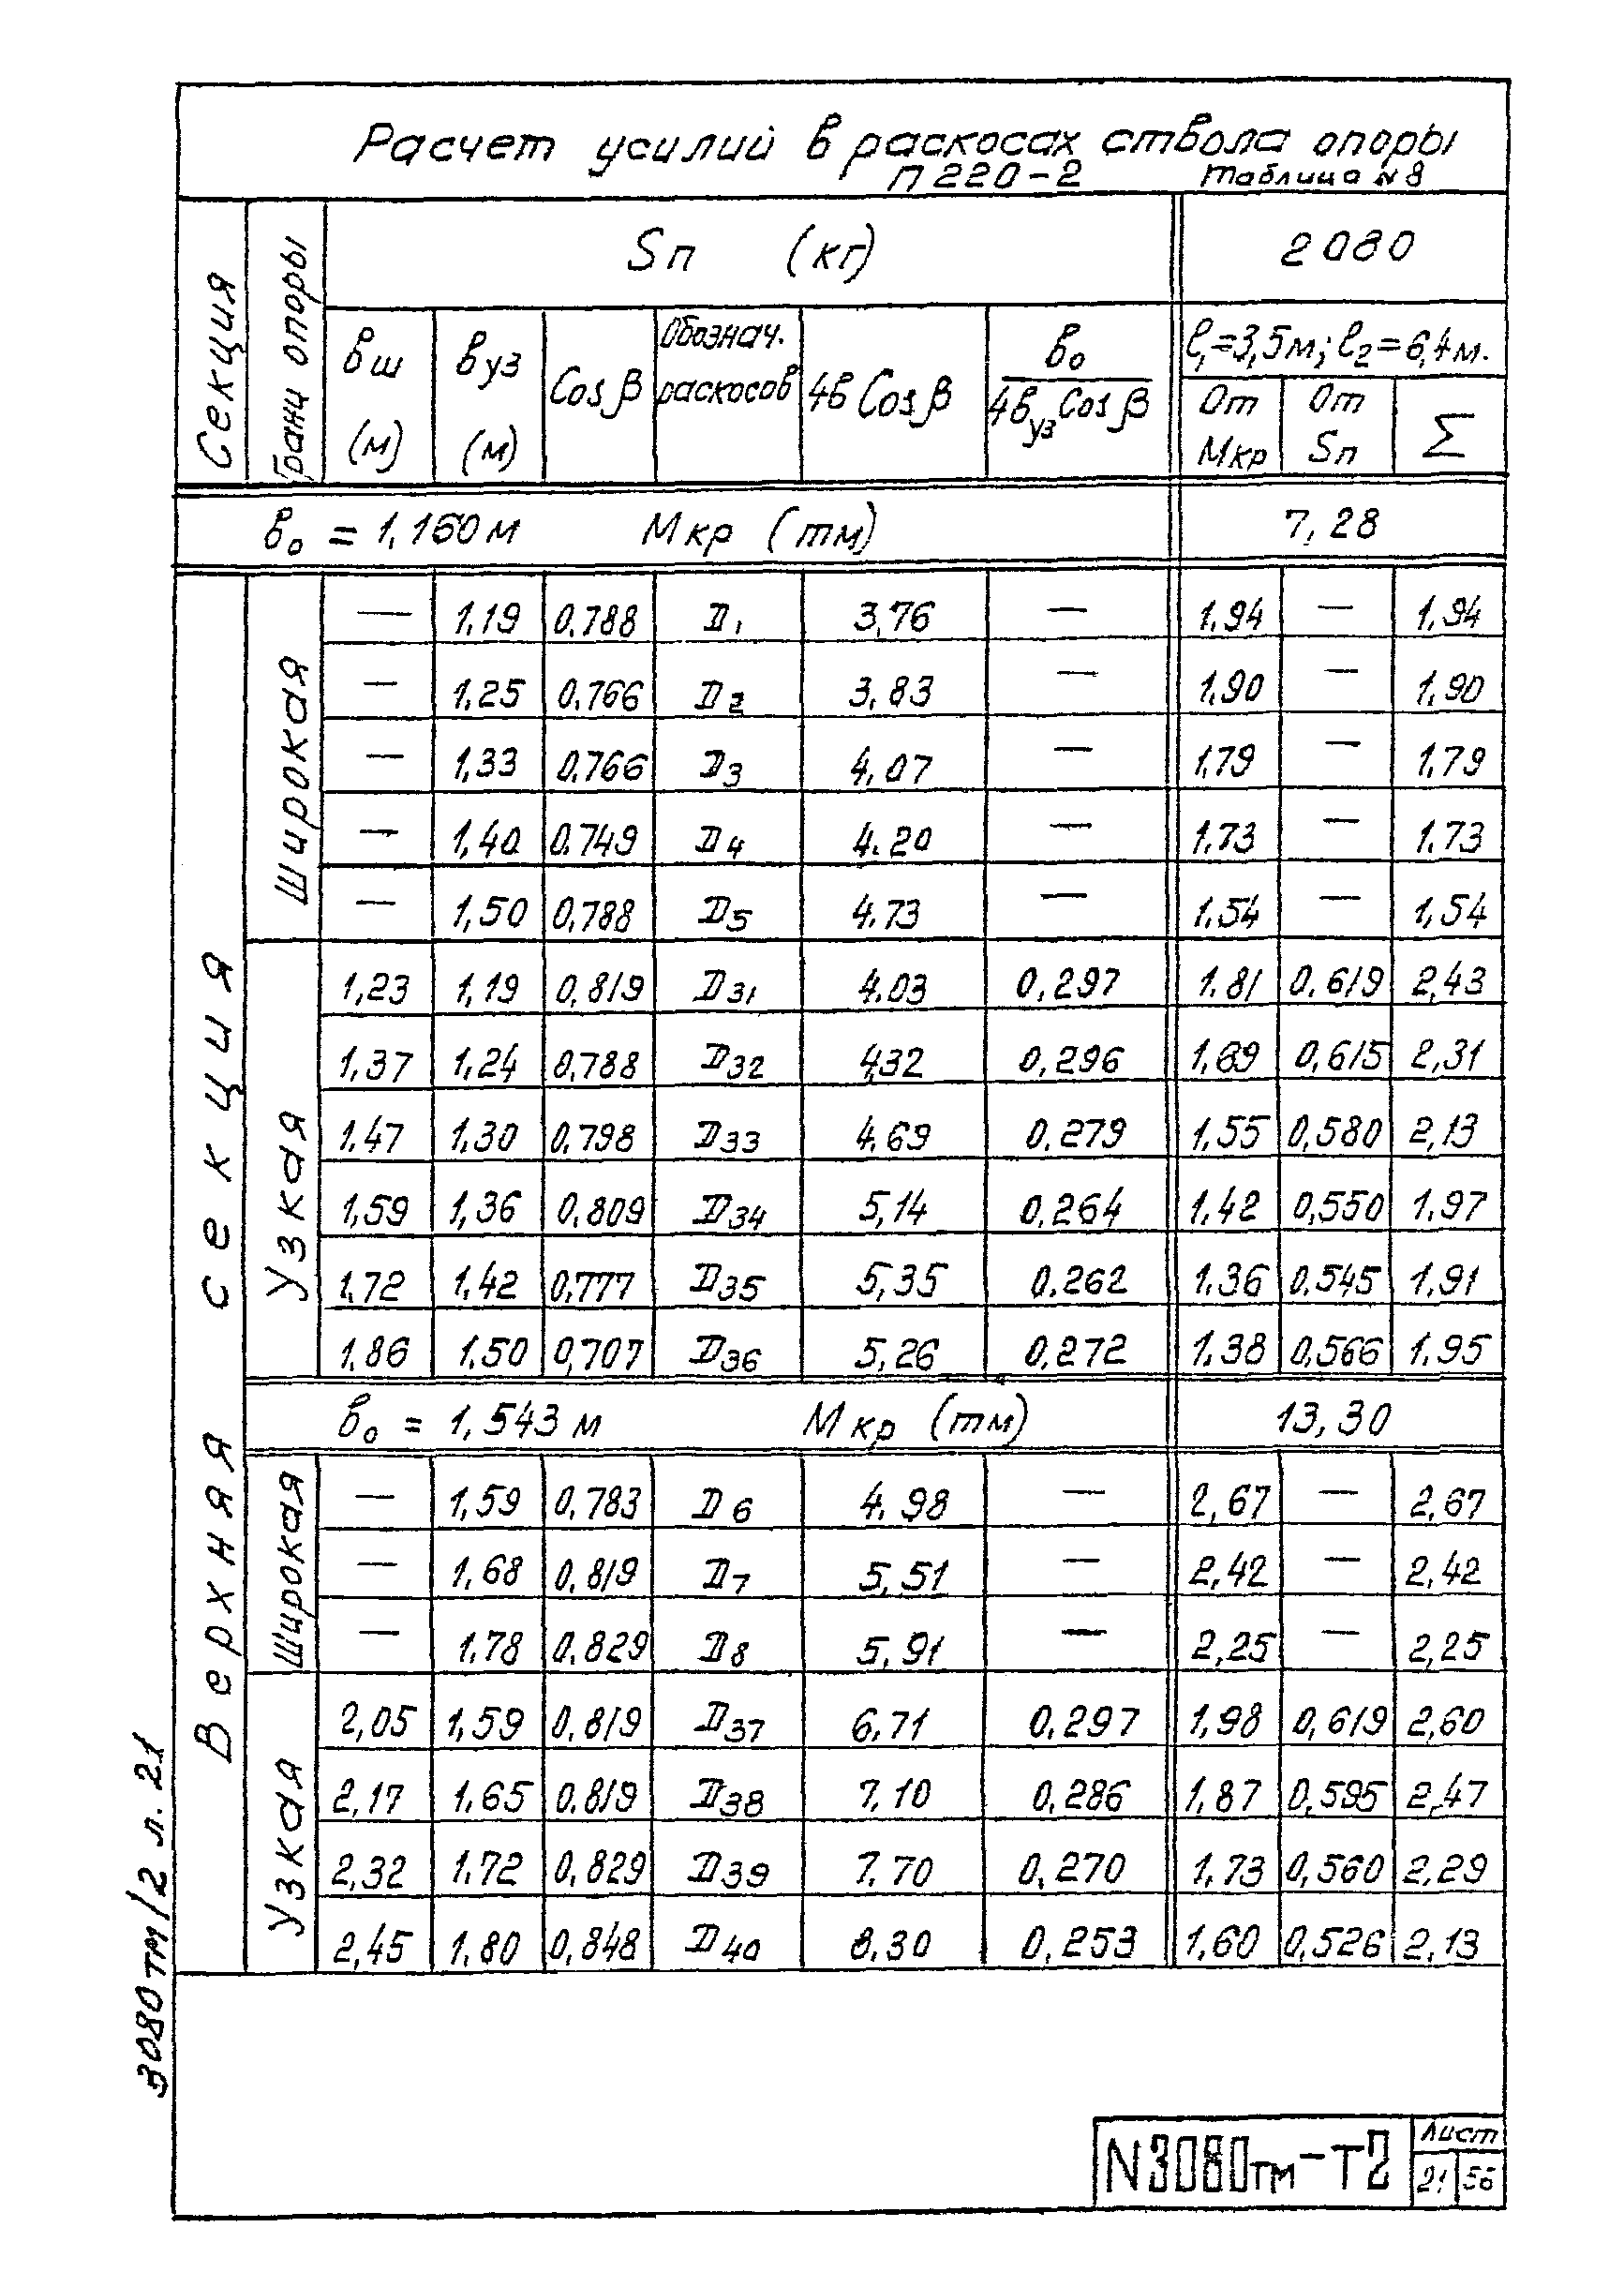 Расчет усилий в раскосах ствола опоры
П220-2 Таблица N8
Секция Грани опоры Sп (кг) 2080
вш (м) вуз (м) Cosβ Обознач. раскосов 4вCosβ в₀/4вузCosβ ℓ₁=3,5м; ℓ₂=6,4м.
От Мкр От Sп Σ
в₀ = 1,160м Мкр (тм) 7,28
Верхняя секция
Широкая
— 1,19 0,788 D₁ 3,76 — 1,94 — 1,94
— 1,25 0,766 D₂ 3,83 — 1,90 — 1,90
— 1,33 0,766 D₃ 4,07 — 1,79 — 1,79
— 1,40 0,749 D₄ 4,20 — 1,73 — 1,73
— 1,50 0,788 D₅ 4,73 — 1,54 — 1,54
Узкая
1,23 1,19 0,819 D₃₁ 4,03 0,297 1,81 0,619 2,43
1,37 1,24 0,788 D₃₂ 4,32 0,296 1,69 0,615 2,31
1,47 1,30 0,798 D₃₃ 4,69 0,279 1,55 0,580 2,13
1,59 1,36 0,809 D₃₄ 5,14 0,264 1,42 0,550 1,97
1,72 1,42 0,777 D₃₅ 5,35 0,262 1,36 0,545 1,91
1,86 1,50 0,707 D₃₆ 5,26 0,272 1,38 0,566 1,95
в₀ = 1,543м Мкр (тм) 13,30
Широкая
— 1,59 0,783 D₆ 4,98 — 2,67 — 2,67
— 1,68 0,819 D₇ 5,51 — 2,42 — 2,42
— 1,78 0,829 D₈ 5,91 — 2,25 — 2,25
Узкая
2,05 1,59 0,819 D₃₇ 6,71 0,297 1,98 0,619 2,60
2,17 1,65 0,819 D₃₈ 7,10 0,286 1,87 0,595 2,47
2,32 1,72 0,829 D₃₉ 7,70 0,270 1,73 0,560 2,29
2,45 1,80 0,848 D₄₀ 8,30 0,253 1,60 0,526 2,13
3080тм/2 л. 21
N3080тм-Т2
Лист
21 56